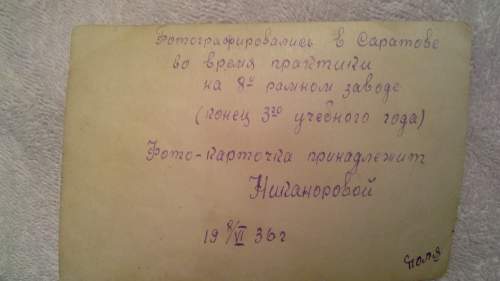 Фотографировались в Саратове
во время практики
на 8ᵒⁿ рамном заводе
(конец 3го учебного года)
Фото-карточка принадлежит
Никаноровой
19 8/VI 36г